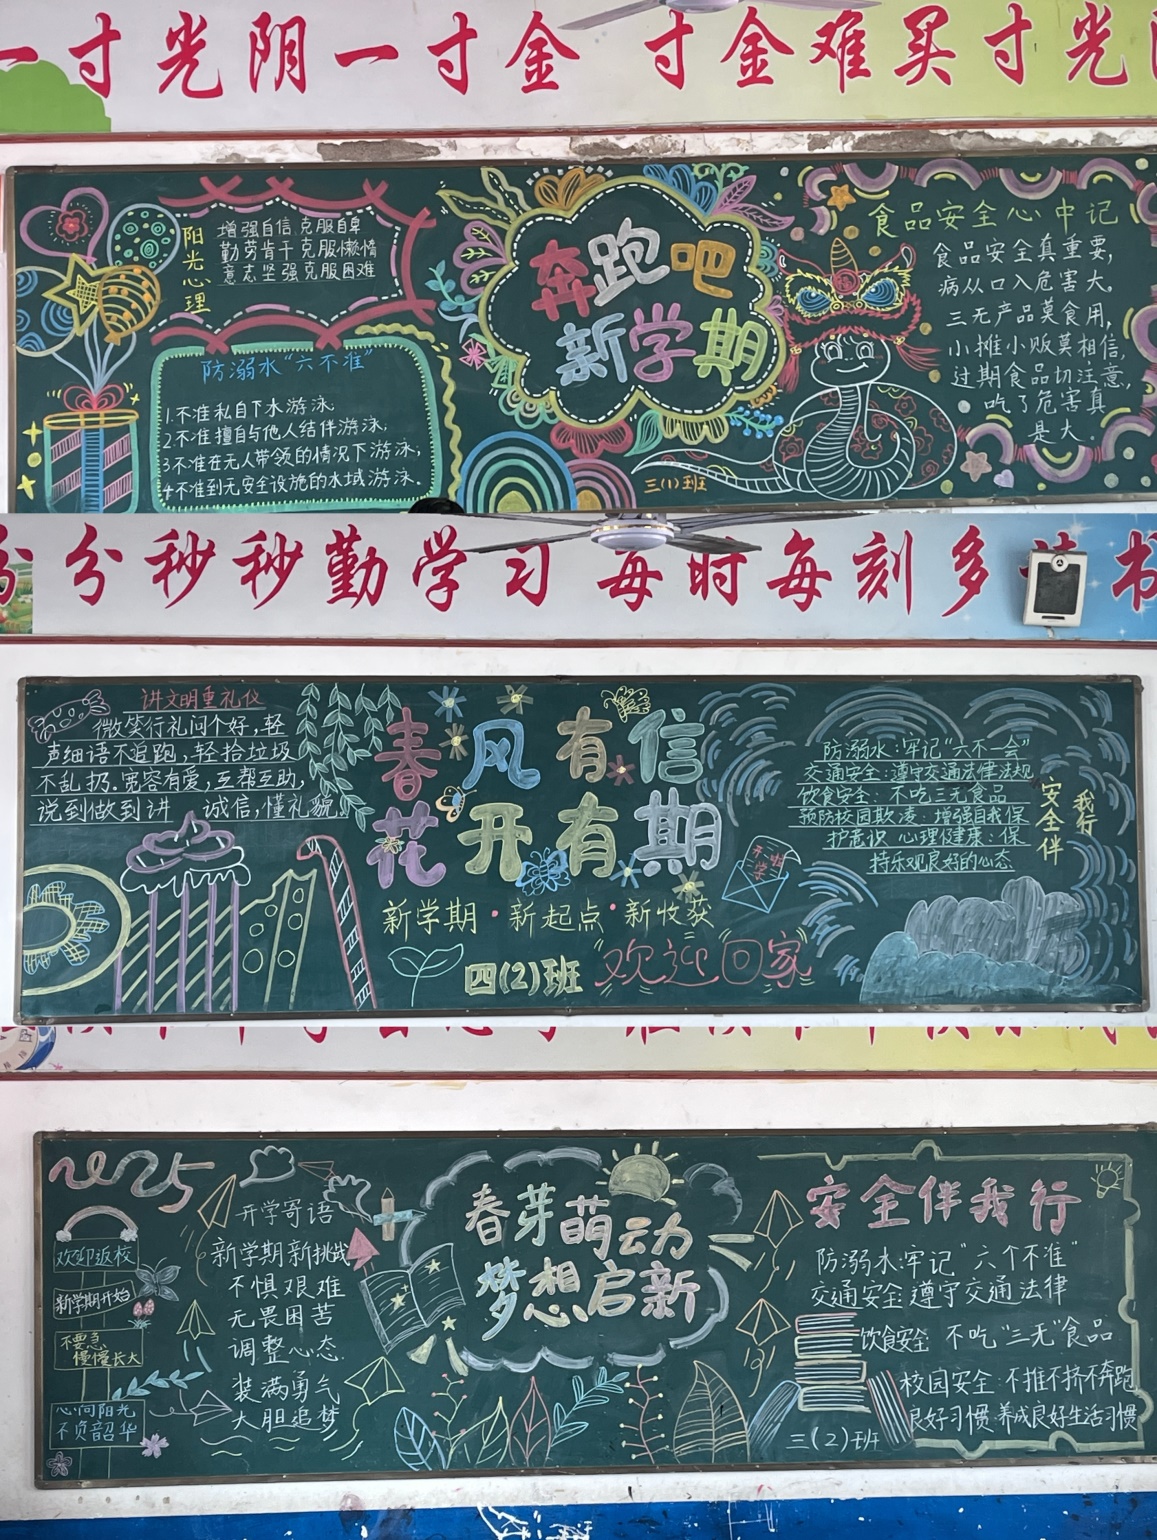 一寸光阴一寸金 寸金难买寸光
阳光心理
增强自信克服自卑
勤劳肯干克服懒惰
意志坚强克服困难
防溺水“六不准”
1.不准私自下水游泳
2.不准擅自与他人结伴游泳,
3不准在无人带领的情况下游泳,
4不准到无安全设施的水域游泳.
奔跑吧
新学期
三(1)班
食品安全心中记
食品安全真重要,
病从口入危害大。
三无产品莫食用,
小摊小贩莫相信,
过期食品切注意,
吃了危害真
是大.
分秒秒勤学习 每时每刻多 书
讲文明重礼仪
微笑行礼问个好,轻
声细语不追跑,轻拾垃圾
不乱扔.宽容有爱,互帮互助,
说到做到讲 诚信,懂礼貌。
春风有信
花开有期
新学期·新起点·新收获
四(2)班 欢迎回家
开学
防溺水:牢记“六不一会”
交通安全:遵守交通法律法规
饮食安全:不吃三无食品
预防校园欺凌:增强自我保
护意识 心理健康:保
持乐观良好的心态
安全伴
我行
2025
欢迎返校
新学期开始
不要急
慢慢长大
心向阳光
不负韶华
开学寄语
新学期新挑战
不惧艰难
无畏困苦
调整心态
装满勇气
大胆追梦
春芽萌动
梦想启新
安全伴我行
防溺水:牢记“六个不准”
交通安全:遵守交通法律
饮食安全:不吃“三无”食品
校园安全:不推不挤不奔跑
良好习惯:养成良好生活习惯
三(2)班